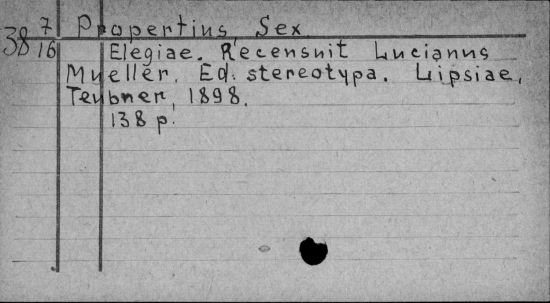 38 7/16 Propertius, Sex.
Elegiae. Recensuit Lucianus
Mueller. Ed. stereotypa. Lipsiae,
Teubner, 1898.
138 p.